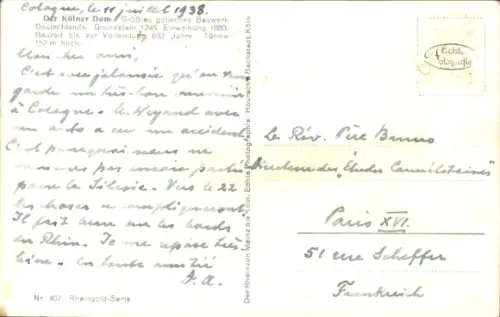 Cologne, le 11 juillet 1938.
Der Kölner Dom. Größtes gotisches Bauwerk
Deutschlands. Grundstein 1248. Einweihung 1880.
Bauzeit bis zur Vollendung 632 Jahre. Türme
157 m hoch.
Mon cher ami,
C'est avec qu'on
garde un très bon
à Cologne - M. Weyand avec
un auto a eu un accident.
C'est pourquoi nous ne
sommes pas encore partis
pour la Silésie - Vers le 22
les choses se compliqueront.
Il fait beau sur les bords
du Rhin. Je me repose très
bien. En toute amitié
J. A.
Nr. 407 Rheingold-Serie
Der Rheinvon Mainz bis Köln, Echte Photographie, Hoursche Bechstedt, Köln
Echte
Fotografie
Le Rév. Père Bruno
Directeur des "Etudes Carmélitaines"
Paris XVI.
51 rue Scheffer
Frankreich